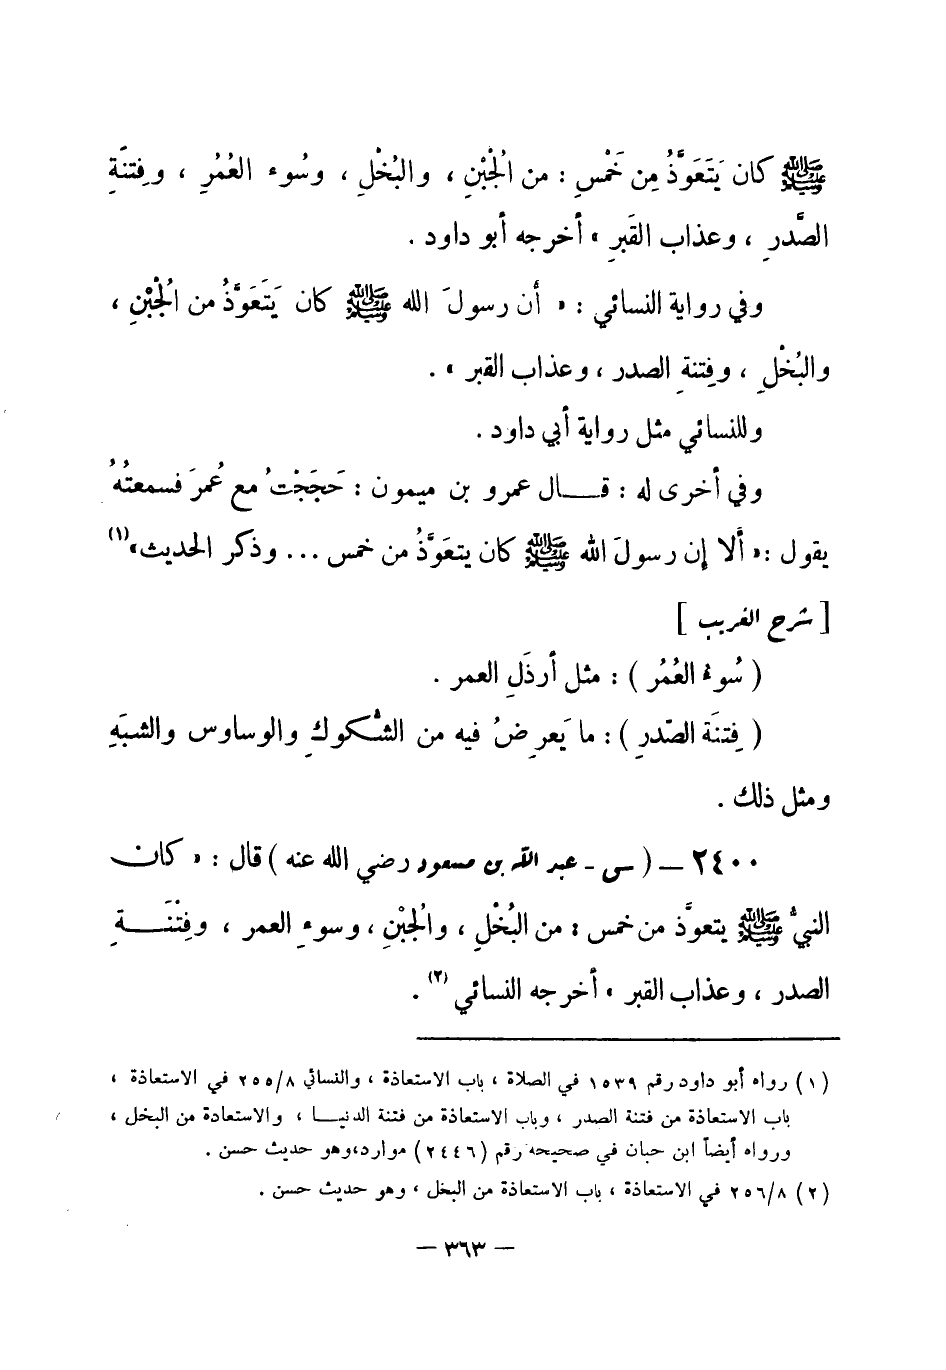 ﷺ كان يَتَعَوَّذُ مِن خَمْسٍ : من الْجُبْنِ ، والبُخْلِ ، وسُوء العُمُرِ ، وفِتنَةِ
الصَّدرِ ، وعذاب القَبرِ » أخرجه أبو داود .
وفي رواية النسائي : « أن رسولَ الله ﷺ كان يَتَعَوَّذُ من الْجُبْنِ ،
والبُخْلِ ، وفِتنةِ الصدر ، وعذاب القبر » .
وللنسائي مثل رواية أبي داود .
وفي أخرى له : قــال عمرو بن ميمون : حَجَجْتُ مع عُمرَ فسمعتُهُ
يقول : « ألا إن رسولَ الله ﷺ كان يتعَوَّذُ من خمس ... وذكر الحديث » (١)
[ شرح الغريب ]
( سُوءُ العُمُر ) : مثل أرذَلِ العمر .
( فِتنَة الصّدرِ ) : ما يَعرِضُ فيه من الشُّكوكِ والوساوس والشبَهِ
ومثل ذلك .
٢٤٠٠ – ( س - عبد الله بن مسعود رضي الله عنه ) قال : « كان
النبيُّ ﷺ يتعوَّذ من خمس : من البُخْلِ ، والْجُبْنِ ، وسوءِ العمر ، وفِتْنَــةِ
الصدر ، وعذاب القبر » أخرجه النسائي (٢) .
(١) رواه أبو داود رقم ١٥٣٩ في الصلاة ، باب الاستعاذة ، والنسائي ٢٥٥/٨ في الاستعاذة ،
باب الاستعاذة من فتنة الصدر ، وباب الاستعاذة من فتنة الدنيــا ، والاستعاذة من البخل ،
ورواه أيضاً ابن حبان في صحيحه رقم (٢٤٤٦) موارد، وهو حديث حسن .
(٢) ٢٥٦/٨ في الاستعاذة ، باب الاستعاذة من البخل ، وهو حديث حسن .
– ٣٦٣ –